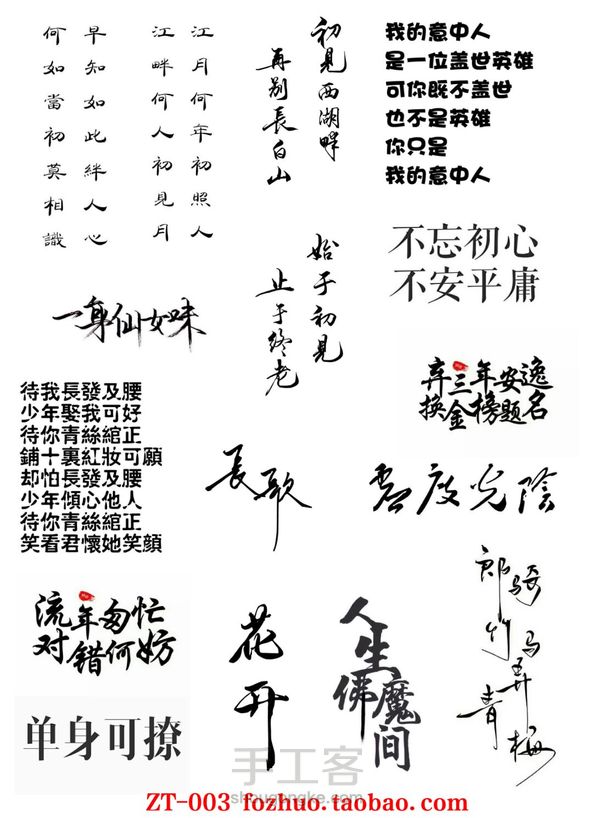 江月何年初照人
江畔何人初見月
早知如此絆人心
何如當初莫相識
初見西湖畔
再别長白山
我的意中人
是一位盖世英雄
可你既不盖世
也不是英雄
你只是
我的意中人
不忘初心
不安平庸
始于初見
止于终老
一身仙女味
弃三年安逸
换金榜题名
待我長發及腰
少年娶我可好
待你青絲綰正
鋪十裏紅妝可願
却怕長發及腰
少年傾心他人
待你青絲綰正
笑看君懷她笑顔
長歌
虚度光陰
流年匆忙
对错何妨
花开
人生
佛魔间
郎骑竹马弄青梅
单身可撩
手工客
ZT-003 fozhuo.taobao.com